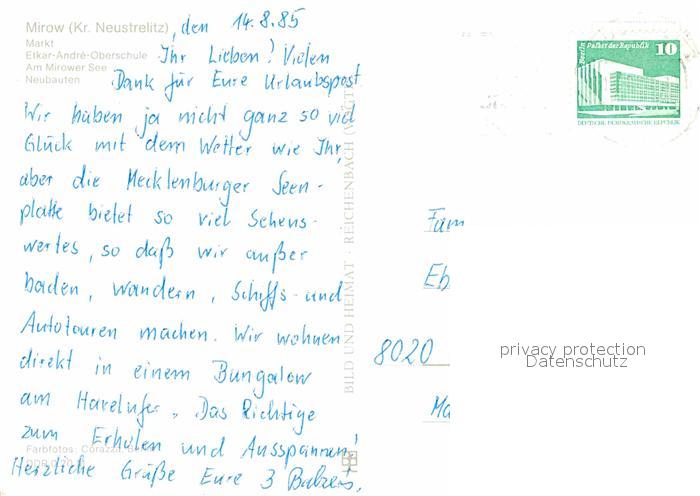 Mirow (Kr. Neustrelitz), den 14.8.85
Markt
Etkar-André-Oberschule
Am Mirower See
Neubauten
Ihr Lieben! Vielen
Dank für Eure Urlaubspost
Wir haben ja nicht ganz so viel
Glück mit dem Wetter wie Ihr,
aber die Mecklenburger Seen-
platte bietet so viel Sehens-
wertes, so daß wir außer
baden, wandern, Schiffs- und
Autotouren machen. Wir wohnen
direkt in einem Bungalow
am Havelufer. Das Richtige
zum Erholen und Ausspannen!
Herzliche Grüße Eure 3 Balzers.
Farbfotos: Corazza
BILD UND HEIMAT · REICHENBACH (VOGTL)
Berlin
Palast der Republik
10
DEUTSCHE DEMOKRATISCHE REPUBLIK
Fam
Eb
8020
Ma
privacy protection
Datenschutz